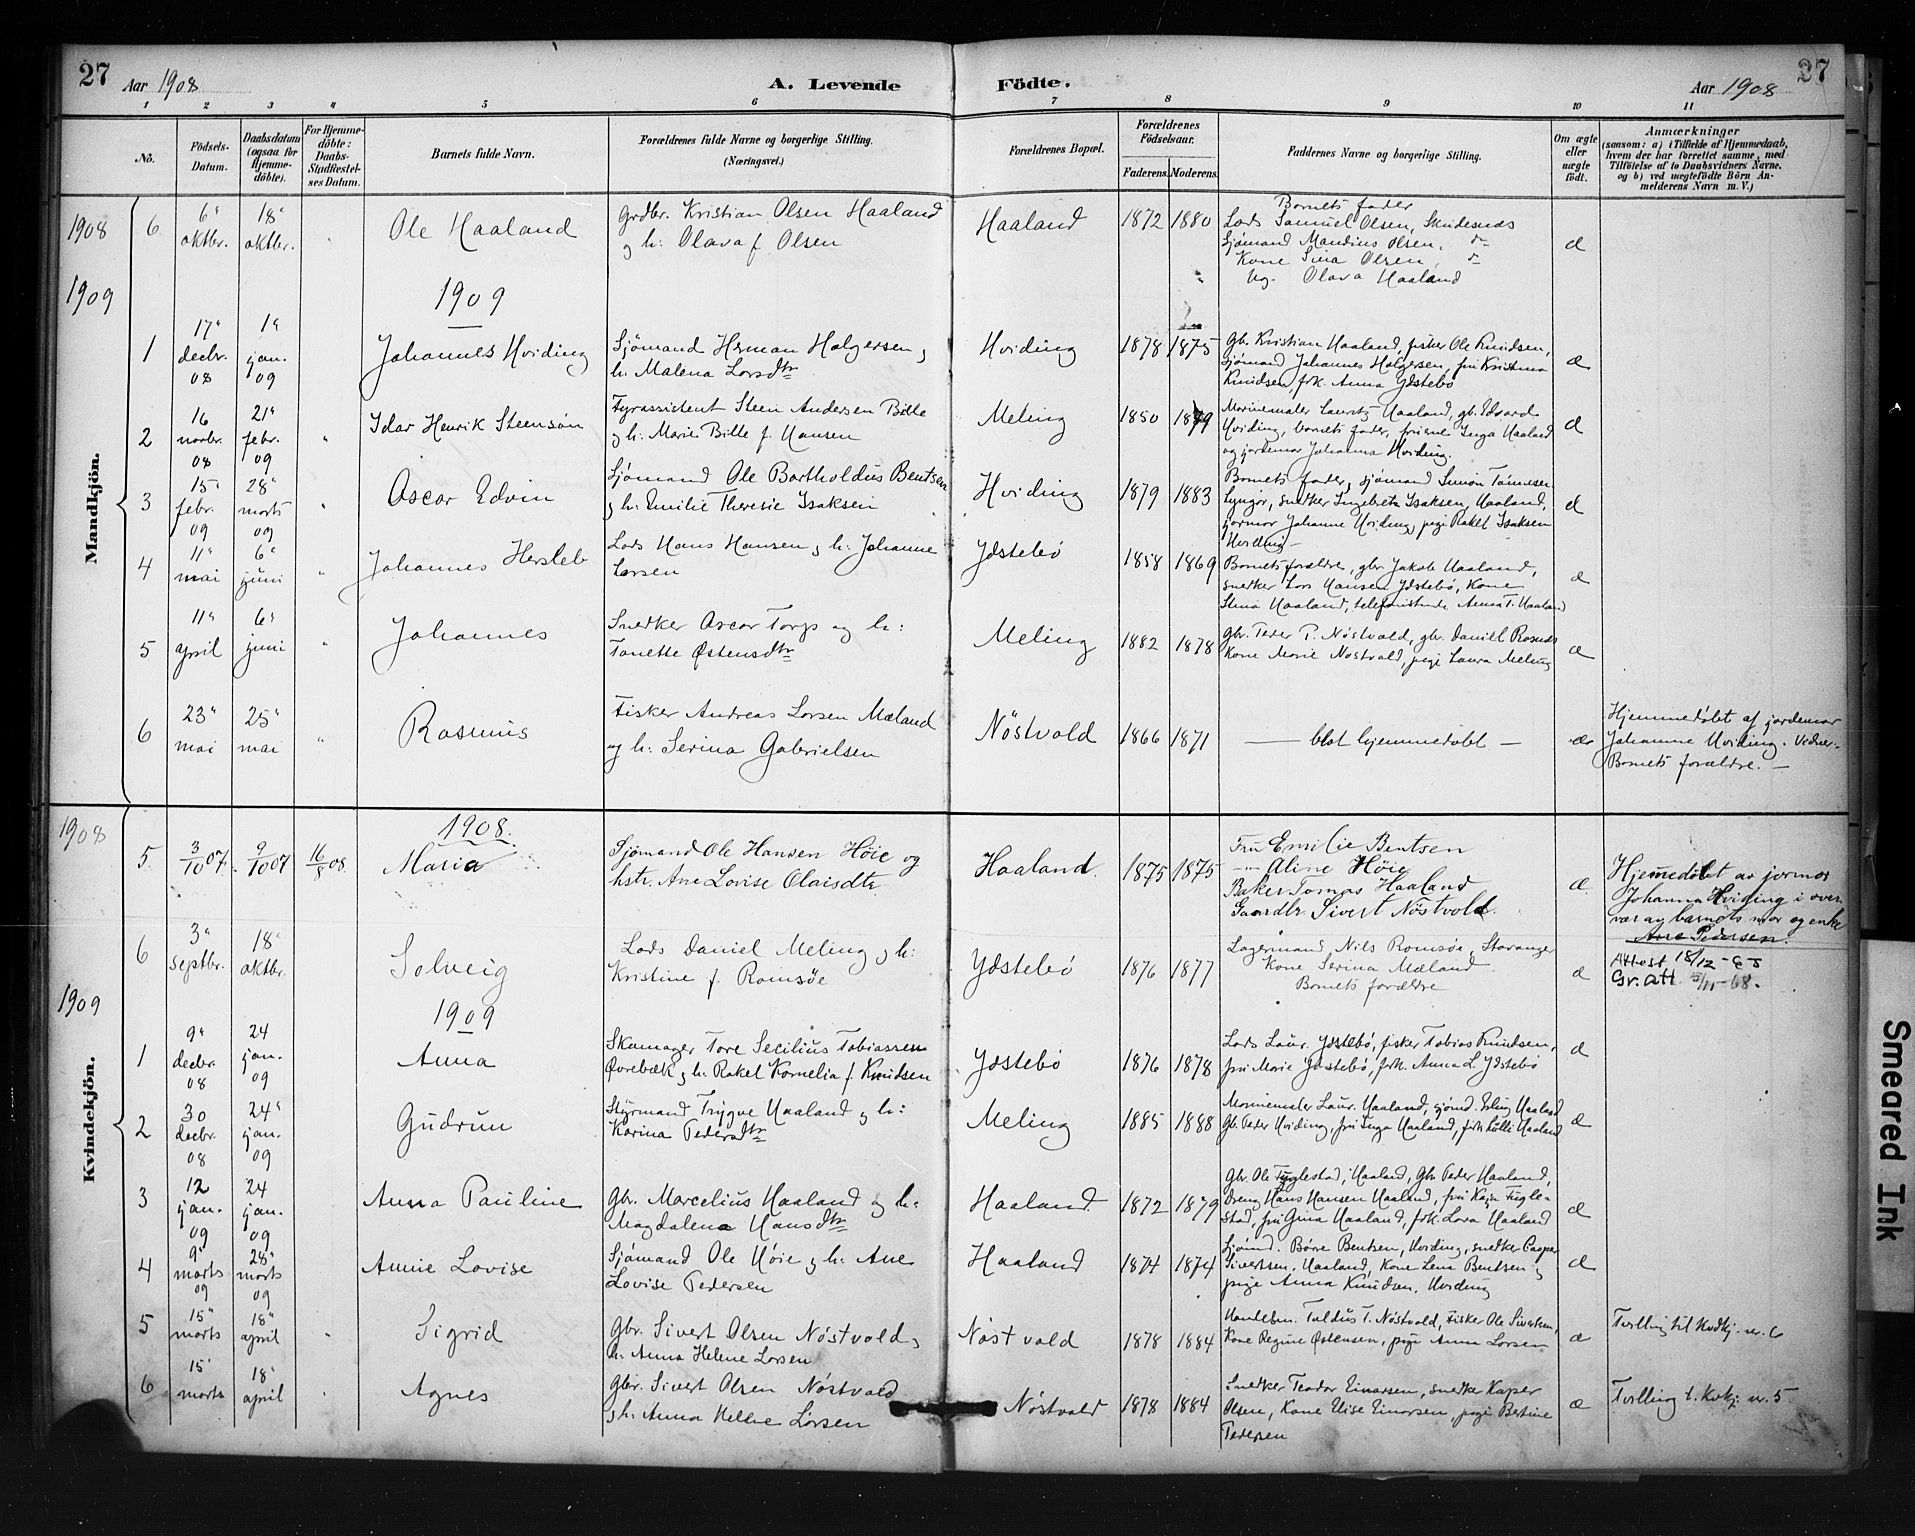 27
Aar 1908
A. Levende
Födte.
Aar 1908
27
1 2 3 4 5 6 7 8 9 10 11
No.
Födsels-
Datum.
Daabsdatum
(ogsaa for
Hjemme-
döbte).
For Hjemme-
döbte:
Daabs-
Stadfæstel-
ses Datum.
Barnets fulde Navn.
Forældrenes fulde Navne og borgerlige Stilling.
(Næringsvei.)
Forældrenes Bopæl.
Forældrenes
Födselsaar.
Faderens.
Moderens.
Faddernes Navne og borgerlige Stilling.
Om ægte
eller
uægte
födt.
Anmærkninger
(saasom: a) i Tilfælde af Hjemmedaab,
hvem der har forrettet samme, med
Tilföielse af to Daabsvidners Navne.
og b) ved uægtefödte Börn An-
melderens Navn m. V.)
Mandkjön.
1908
6
6' oktbr.
18' oktbr.
Ole Haaland
Grdbr. Kristian Olsen Haaland
og h: Olava f. Olsen
Haaland
1872
1880
Barnets fader
Lods Samuel Olsen, Skudesnæs
Sjömand Mandius Olsen,
Kone Sina Olsen,
Ug. Olava Haaland
æ
1909
1909
1
17' decbr. 08
1' jan. 09
Johannes Hviding
Sjömand Herman Holgersen og
h: Malena Larsdtr
Hviding
1878
1875
Gb. Kristian Haaland, fisker Ole Knudsen,
sjömand Johannes Holgersen, fru Kristina
Knudsen, frk. Anna Ydstebö
æ
2
16 novbr. 08
21' febr. 09
Idar Henrik Steensön
Fyrassistent Steen Andersen Bille
og h: Marie Bille f. Hansen
Meling
1850
1879
Marinemaler Lauritz Haaland, gb. Edvard
Hviding, barnets fader, fruene Inga Haaland
og jordemor Johanna Hviding.
æ
3
15' febr. 09
28' marts 09
Oscar Edvin
Sjömand Ole Bartholdus Bentsen
og h: Emilie Theresie Isaksen
Hviding
1879
1883
Barnets fader, sjömand Simon Tönnesen
Lyngör, snedker Ingebret Isaksen, Haaland,
jormor Johanne Hviding, pige Rakel Isaksen
Hviding
æ
4
11' mai
6' juni
Johannes Hersleb
Lods Hans Hansen og h: Johanne
Larsen
Ydstebö
1858
1869
Barnets forældre, gbr. Jakob Haaland,
snedker Lars Hansen Ydstebö, Kone
Stina Haaland, telefonistinde Anna T. Haaland
æ
5
11' april
6' juni
Johannes
Snedker Oscar Torp og h:
Tonette Östensdtr
Meling
1882
1878
Gbr. Peder P. Nöstvold, gbr. Daniel
Kone Marie Nöstvold, pige Laura Meling
æ
6
23' mai
25' mai
Rasmus
Fisker Andreas Larsen Mæland
og h: Serina Gabrielsen
Nöstvold
1866
1871
— blot hjemmedöbt —
æ
Hjemmedöbt af jordemor
Johanne Hviding. Vidner:
Barnets forældre. —
Kvindekjön.
1908
1908.
5
3/10 07
9/10 07
16/8 08
Maria
Sjömand Ole Hansen Höie og
hstr. Ane Lovise Olaisdtr
Haaland.
1875
1875
Fru Emilie Bentsen
— Aline Höie
Baker Tomas Haaland
Gaardbr. Sivert Nöstvold.
æ
Hjemedöbt av jormor
Johanna Hviding i over
vær av barnets mor og enke
Ane Pedersen.
6
3' septbr.
18' oktbr.
Solveig
Lods Daniel Meling og h:
Kristine f. Romsöe
Ydstebö
1876
1877
Lagermand Nils Romsöe, Stavanger
Kone Serina Mæland
Barnets forældre
æ
Attest 18/12 -
Gr. att. -68.
1909
1909
1
9' decbr. 08
24 jan. 09
Anna
Skomager Tore Secilius Tobiassen
Övrebæk og h: Rakel Kornelia f. Knudsen
Ydstebö
1876
1878
Lods Laur. Ydstebö, fisker Tobias Knudsen,
fru Marie Ydstebö, frk. Anna L. Ydstebö
æ
2
30 decbr. 08
24' jan. 09
Gudrun
Styrmand Trygve Haaland og h:
Karina Pedersdtr
Meling
1885
1888
Marinemaler Laur. Haaland, sjömd. Erling Haaland
Gb. Peder Hviding, fru Inga Haaland, frk. Lölli Haaland
æ
3
12 jan. 09
24 jan. 09
Anna Pauline
Gbr. Marcelius Haaland og h:
Magdalena Hansdtr
Haaland
1872
1879
Gbr. Ole Fuglestad, Haaland, Gbr. Peder Haaland,
Dreng Hans Hansen Haaland, fru Kaja Fugle-
stad, fru Gina Haaland, frk. Lava Haaland
æ
4
9' marts 09
28' marts 09
Annie Lovise
Sjömand Ole Höie og h: Ane
Lovise Pedersen
Haaland
1874
1874
Sjömd. Börre Bentsen, Hviding, snedker Casper
Sivertsen, Haaland, Kone Lena Bentsen og
pige Anna Knudsen, Hviding
æ
5
15' marts
18' april
Sigrid
Gbr. Sivert Olsen Nöstvold og
h: Anna Helene Larsen
Nöstvold
1878
1884
Handelsm. Tuldus T. Nöstvold, Fisker Ole Sivertsen,
Kone Regine Östensen, pige Anna Larsen
æ
Tvilling til Kvdkj. nr. 6
6
15' marts
18' april
Agnes
Gbr. Sivert Olsen Nöstvold
og h: Anna Helene Larsen
Nöstvold
1878
1884
Snedker Teodor Einarsen, snedker Kasper
Olsen, Kone Elise Einarsen, pige Bertine
Pedersen
æ
Tvilling t. Kvkj. nr. 5
Smeared Ink